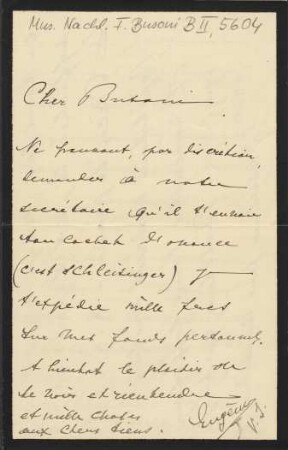 Mus. Nachl. F. Busoni B II, 5604
Cher Busoni
Ne pouvant, par discrétion,
demander à notre
secrétaire qu'il t'envoie
ton cachet d'avance
(c'est Schleisinger) je
t'expédie mille francs
sur mes fonds personnels.
A bientot le plaisir de
te voir et réentendre
et mille choses
aux chers tiens.
Eugène